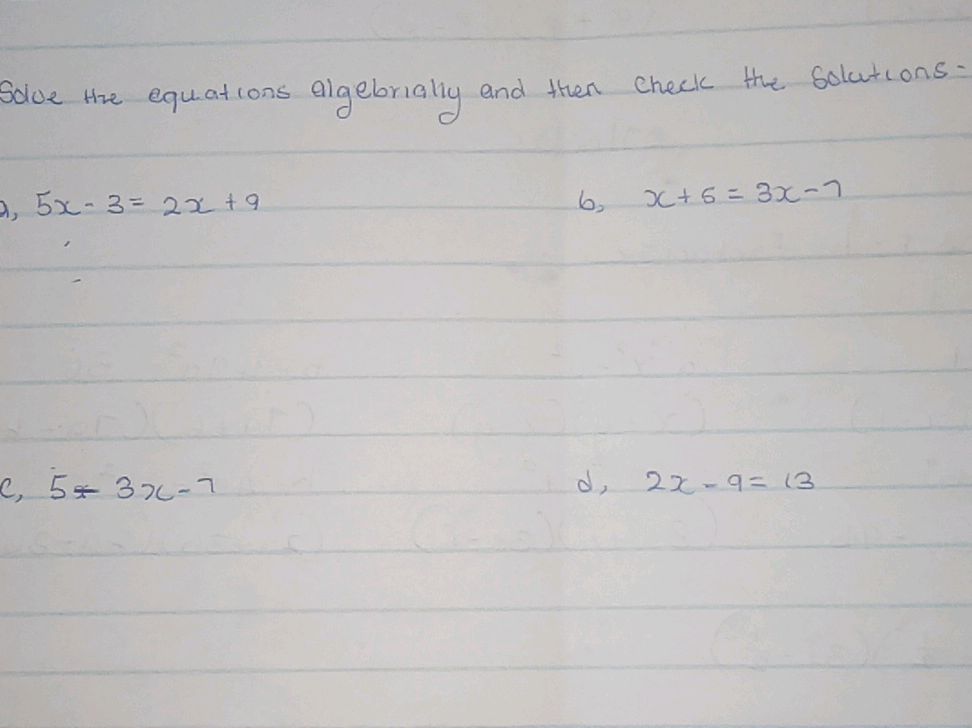 Solve the equations algebrially and then check the Solutions=
a, 5x - 3 = 2x + 9
b, x + 5 = 3x - 7
c, 5 = 3x - 7
d, 2x - 9 = 13